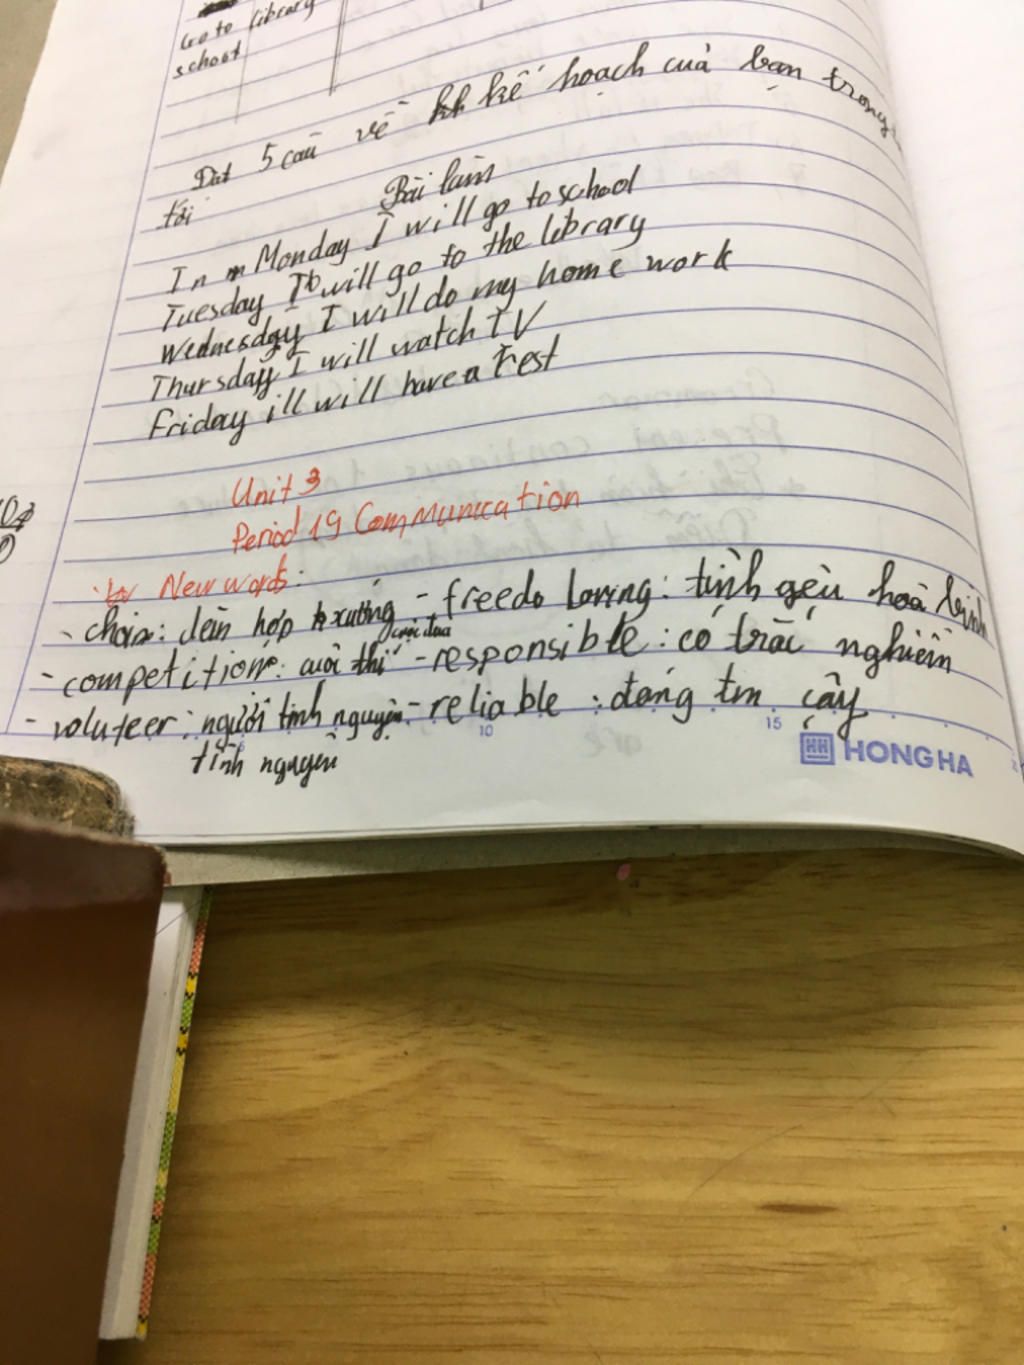 Go to library
school
Đăt 5 câu về kế hoạch của bạn trong
tới
Bài làm
In Monday I will go to school
Tuesday I will go to the library
Wednesday I will do my home work
Thursday I will watch TV
Friday ill will have a rest
Unit 3
Period 19 Communication
New words:
- choir: hợp xướng - freedo loving: tình yêu hoà bình
- competition: cuôi thi cuộc đua - responsible: có trác nghiêm
- voluteer: người tình nguyện - reliable: đáng tin cậy
tình nguyên
10
15
HONG HA